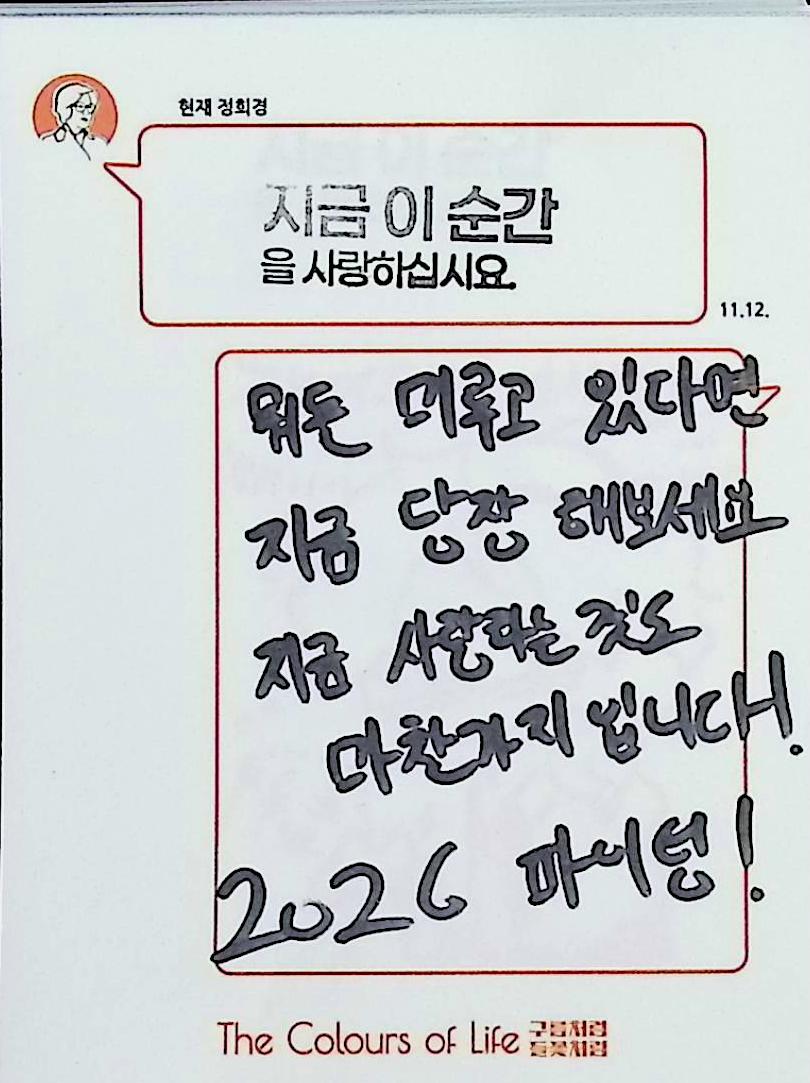 현재 정희경
지금 이 순간
을 사랑하십시요.
11.12.
뭐든 미루고 있다면
지금 당장 해보세요
지금 사랑하는 것도
마찬가지 입니다!
2026 파이팅!
The Colours of Life 구름처럼
들꽃처럼